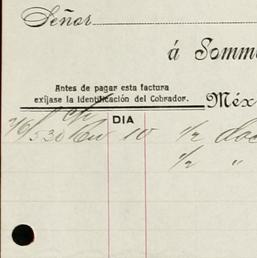 Señor
á Somm
Antes de pagar esta factura
exíjase la Identificación del Cobrador.
Méx
DIA
10 1/2 doc
1/2 "